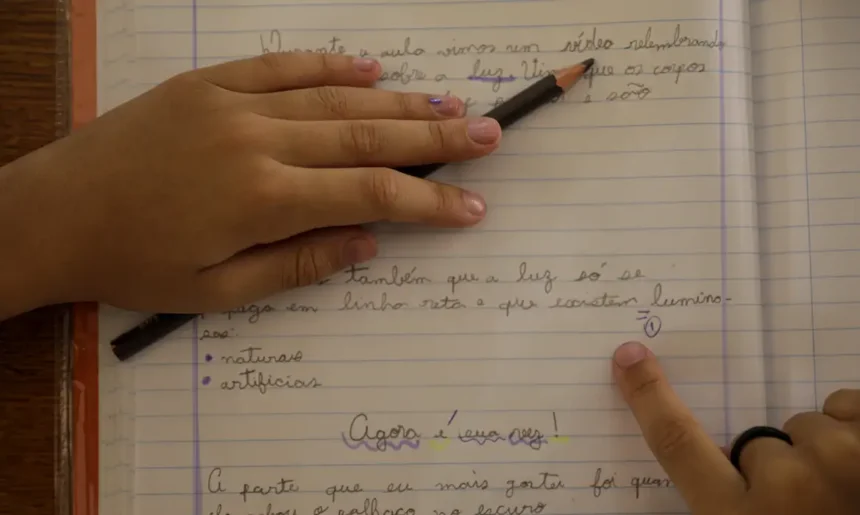 Durante a aula vimos um vídeo relembrando
sobre a luz. que os corpos
e são
também que a luz só se
em linha reta e que existem lumino-
sos:
= 1
• naturais
• artificias
Agora é sua vez!
A parte que eu mais gostei foi quan
o palhaço no escuro